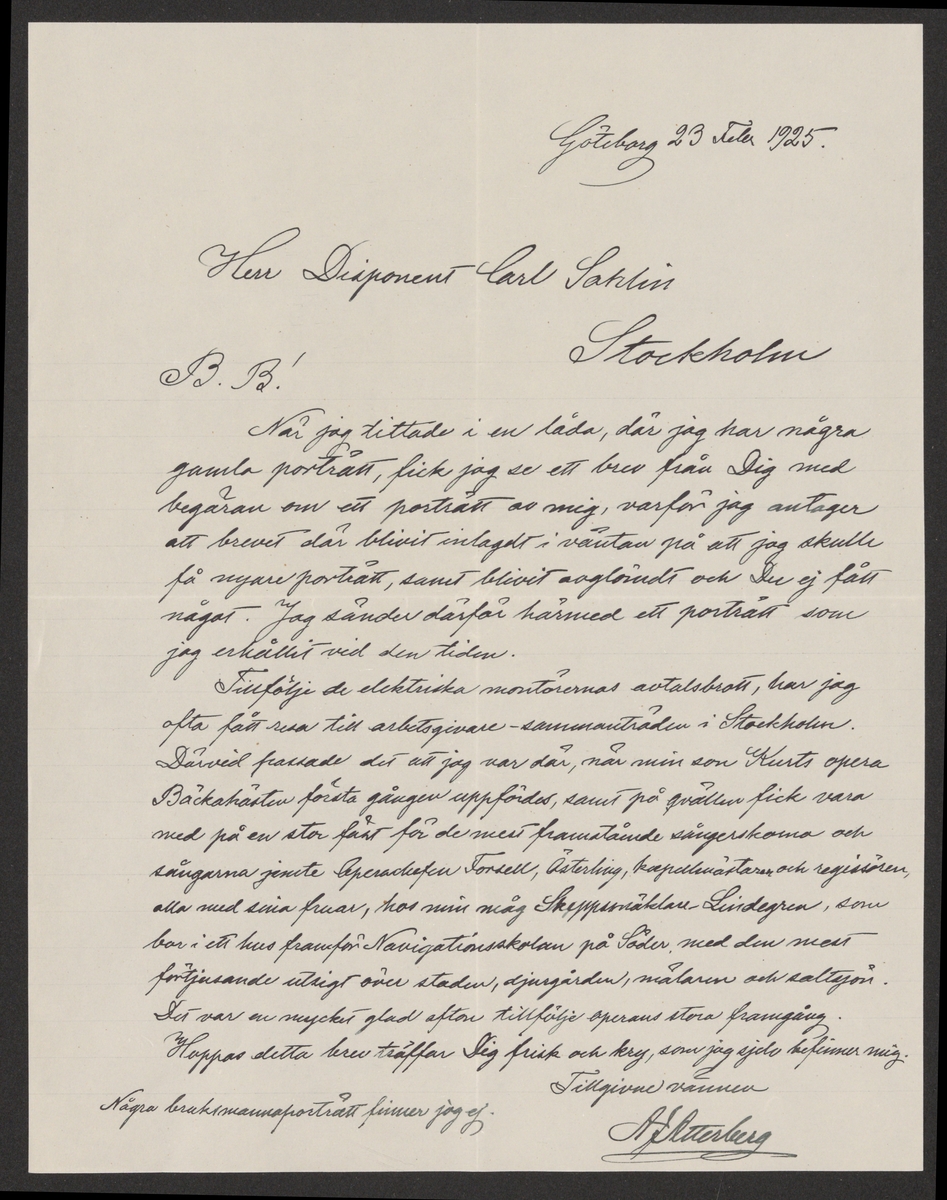 Göteborg 23 Febr 1925.
Herr Disponent Carl Sahlin
Stockholm
B. B!
När jag tittade i en låda, där jag har några
gamla porträtt, fick jag se ett brev från Dig med
begäran om ett porträtt av mig, varför jag antager
att brevet där blivit inlagdt i väntan på att jag skulle
få nyare porträtt, samt blivit avglömdt och Du ej fått
något. Jag sänder därför härmed ett porträtt som
jag erhållit vid den tiden.
Tillfölje de elektriska montörernas avtalsbrott, har jag
ofta fått resa till arbetsgivare-sammanträden i Stockholm.
Därvid passade det att jag var där, när min son Kurts opera
Bäckahästen första gången uppfördes, samt på qvällen fick vara
med på en stor fäst för de mest framstående sångerskorna och
sångarna jemte Operachefen Forsell, Österling, kapellmästaren och regissören,
alla med sina fruar, hos min måg Skeppsmäklare Lindegren, som
bor i ett hus framför Navigationsskolan på Söder med den mest
förtjusande utsigt över staden, djurgården, mälaren och saltsjön.
Det var en mycket glad afton tillfölje operans stora framgång.
Hoppas detta brev träffar Dig frisk och kry, som jag sjelv befinner mig.
Tillgivne vännen
A J Atterberg
Några bruksmannaporträtt finner jag ej.